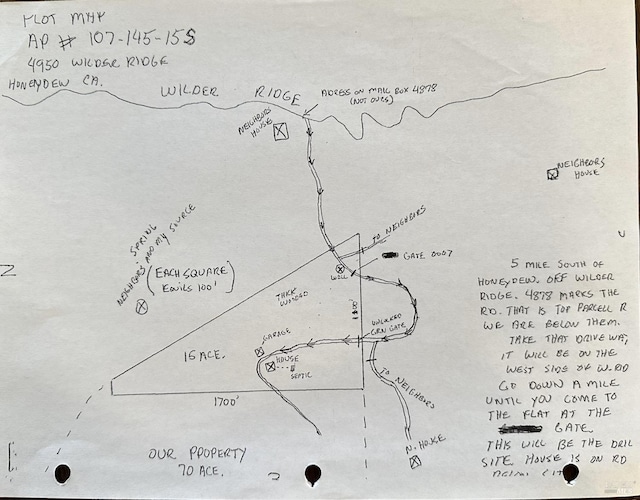 PLOT MAP
AP # 107-145-15S
4950 WILDER RIDGE
HONEYDEW CA.
WILDER RIDGE
ADRES ON MAIL BOX 4878
(NOT OURS)
NEIGHBORS
HOUSE
NEIGHBORS
HOUSE
TO NEIGHBORS
GATE 0007
WELL
NEIGHBORS SPRING
AND MY SOURCE
(EACH SQUARE
EQUILS 100')
THICK
WOODED
1100'
UNLOCKED
GRN GATE
GARAGE
HOUSE
SEPTIC
15 ACE.
TO NEIGHBORS
1700'
N. HOUSE
OUR PROPERTY
70 ACE.
5 MILE SOUTH OF
HONEYDEW. OFF WILDER
RIDGE. 4878 MARKS THE
RD. THAT IS TOP PARCELL R
WE ARE BELOW THEM.
TAKE THAT DRIVE WAY,
IT WILL BE ON THE
WEST SIDE OF W. RD
GO DOWN A MILE
UNTIL YOU COME TO
THE FLAT AT THE
GATE.
THIS WILL BE THE DRIL
SITE. HOUSE IS ON RD